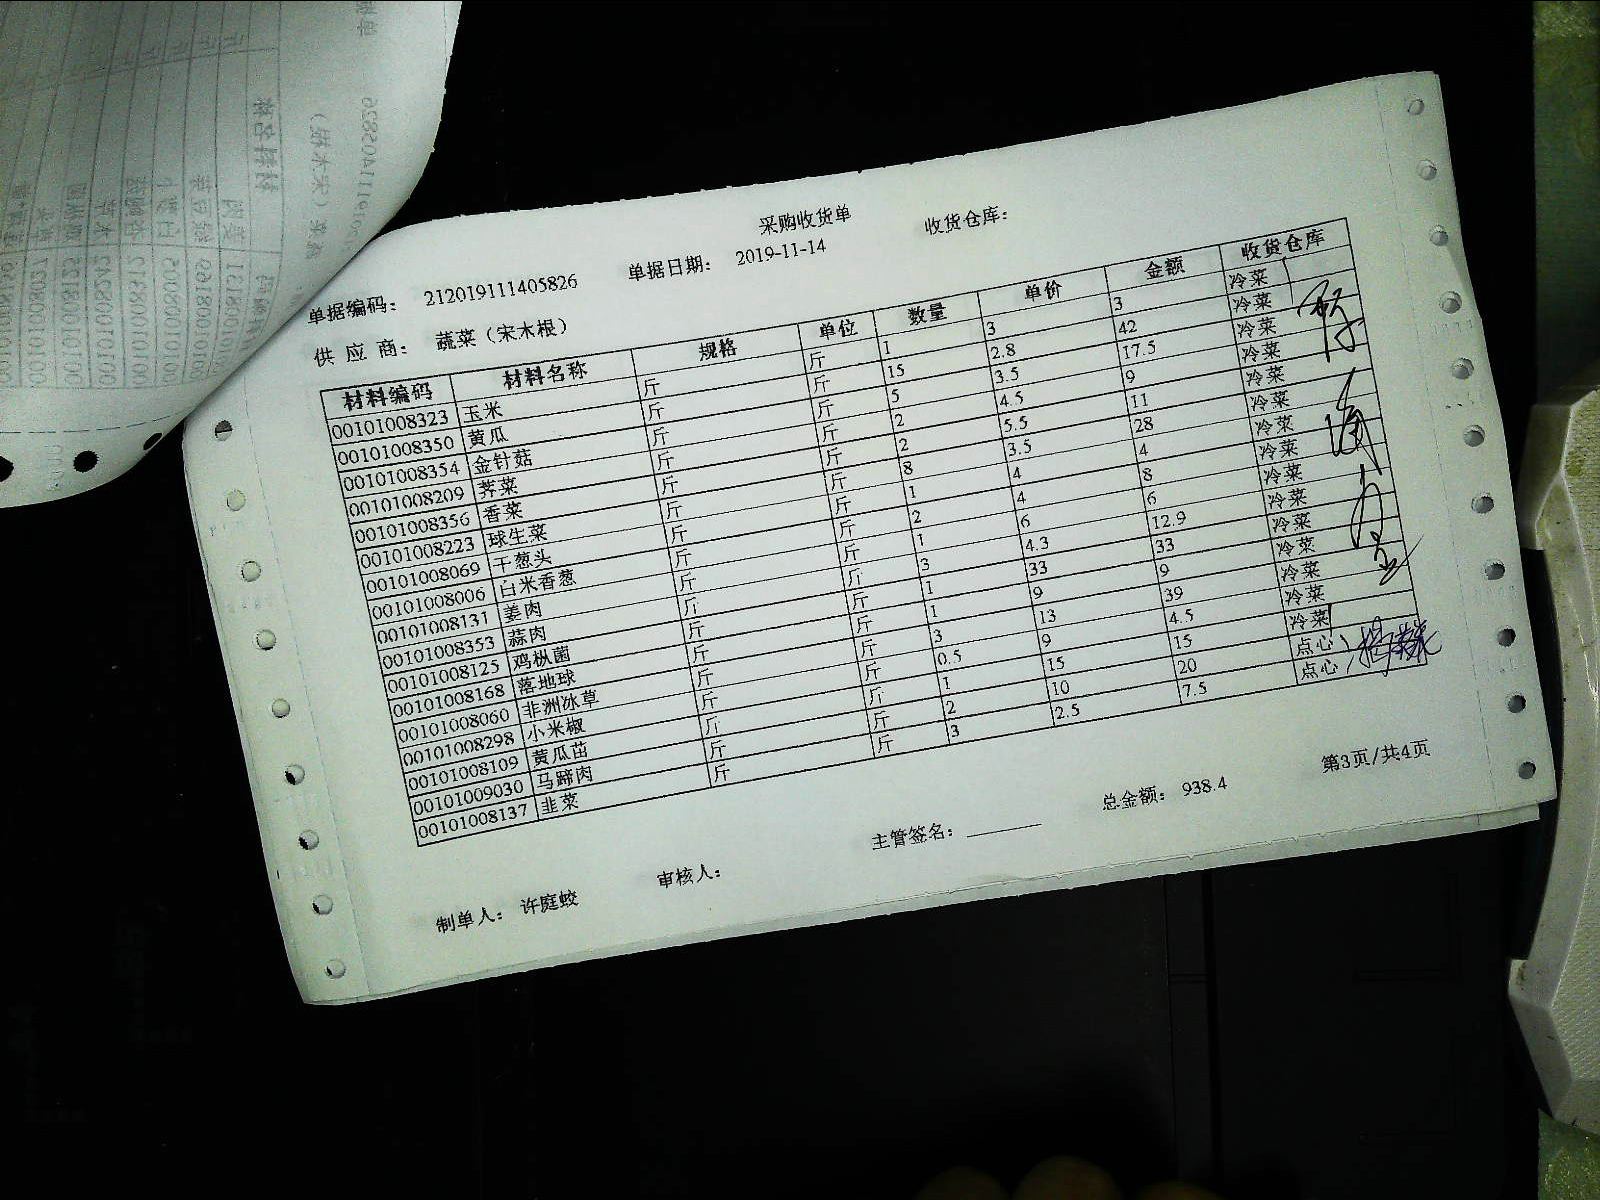 采购收货单
单据编码： 212019111405826 单据日期： 2019-11-14 收货仓库：
供 应 商： 蔬菜（宋木根）
材料编码 材料名称 规格 单位 数量 单价 金额 收货仓库
00101008323 玉米 斤 斤 1 3 3 冷菜
00101008350 黄瓜 斤 斤 15 2.8 42 冷菜
00101008354 金针菇 斤 斤 5 3.5 17.5 冷菜
00101008209 荠菜 斤 斤 2 4.5 9 冷菜
00101008356 香菜 斤 斤 2 5.5 11 冷菜
00101008223 球生菜 斤 斤 8 3.5 28 冷菜
00101008069 干葱头 斤 斤 1 4 4 冷菜
00101008006 白米香葱 斤 斤 2 4 8 冷菜
00101008131 姜肉 斤 斤 1 6 6 冷菜
00101008353 蒜肉 斤 斤 3 4.3 12.9 冷菜
00101008125 鸡枞菌 斤 斤 1 33 33 冷菜
00101008168 落地球 斤 斤 1 9 9 冷菜
00101008060 非洲冰草 斤 斤 3 13 39 冷菜
00101008298 小米椒 斤 斤 0.5 9 4.5 冷菜
00101008109 黄瓜苗 斤 斤 1 15 15 冷菜
00101009030 马蹄肉 斤 斤 2 10 20 点心
00101008137 韭菜 斤 斤 3 2.5 7.5 点心
总金额： 938.4 第3页/共4页
制单人： 许庭蛟 审核人： 主管签名：